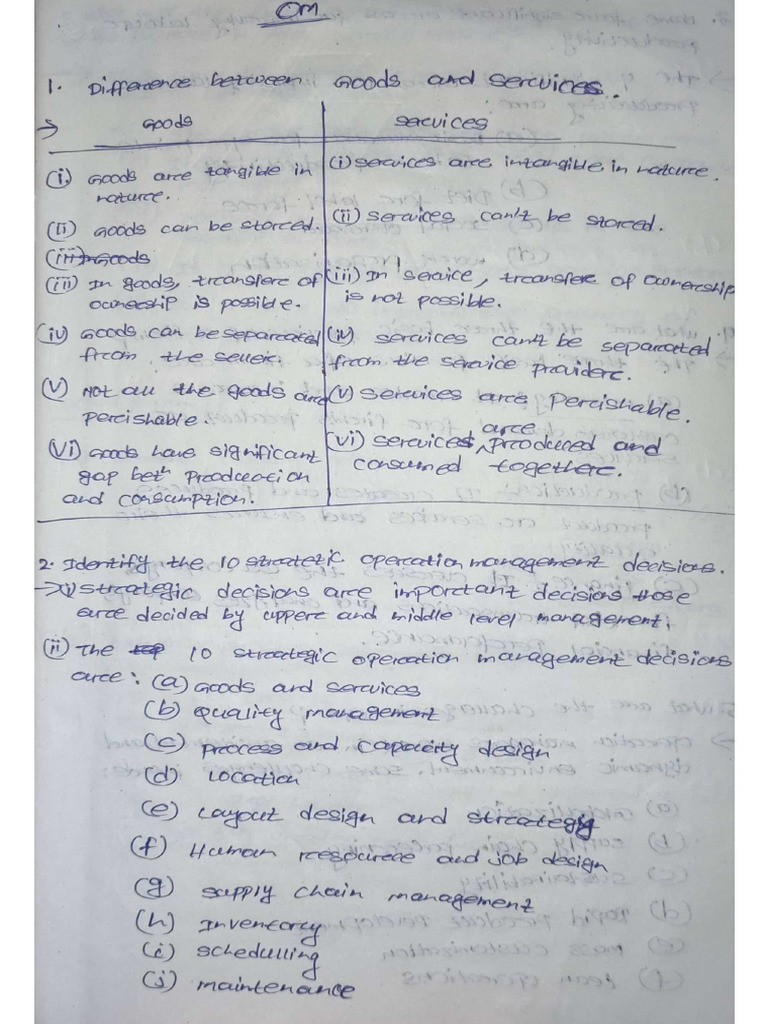 OM
1. Difference between Goods and services.
→ Goods services
(i) Goods are tangible in
nature.
(i) services are intangible in nature.
(ii) Goods can be stored.
(ii) services can't be stored.
(iii) Goods
(iii) In goods, transfer of
ownership is possible.
(iii) In service, transfer of ownership
is not possible.
(iv) Goods can be separated
from the seller.
(iv) services can't be separated
from the service provider.
(v) Not all the goods are
perishable.
(v) services are perishable.
(vi) Goods have significant
gap betn production
and consumption.
(vi) services are produced and
consumed together.
2. Identify the 10 stratetic operation management decisions.
→ (i) strategic decisions are important decisions those
are decided by upper and middle level management.
(ii) The 10 strategic operation management decisions
are: (a) Goods and services
(b) quality management
(c) process and capacity design
(d) Location
(e) Layout design and strategy
(f) Human resource and job design
(g) supply chain management
(h) Inventory
(i) schedulling
(j) maintenance